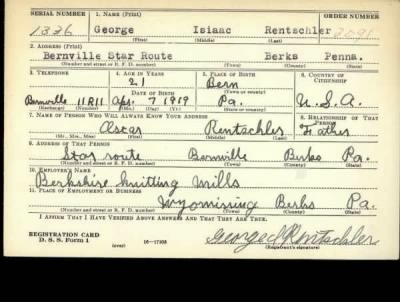 SERIAL NUMBER 1. NAME (Print) ORDER NUMBER
1326 George Isiaac Rentschler 2091
(First) (Middle) (Last)
2. ADDRESS (Print)
Bernville Star Route Berks Penna.
(Number and street or R. F. D. number) (Town) (County) (State)
3. TELEPHONE 4. AGE IN YEARS 5. PLACE OF BIRTH 6. COUNTRY OF CITIZENSHIP
21 Bern
DATE OF BIRTH (Town or county)
Bernville 11R11 Apr. 7 1919 Pa. U.S.A.
(Exchange) (Number) (Mo.) (Day) (Yr.) (State or country)
7. NAME OF PERSON WHO WILL ALWAYS KNOW YOUR ADDRESS 8. RELATIONSHIP OF THAT PERSON
Oscar Rentschler Father
(Mr., Mrs., Miss) (First) (Middle) (Last)
9. ADDRESS OF THAT PERSON
Star route Bernville Berks Pa.
(Number and street or R. F. D. number) (Town) (County) (State)
10. EMPLOYER'S NAME
Berkshire Knitting Mills
11. PLACE OF EMPLOYMENT OR BUSINESS
Wyomissing Berks Pa.
(Number and street or R. F. D. number) (Town) (County) (State)
I AFFIRM THAT I HAVE VERIFIED ABOVE ANSWERS AND THAT THEY ARE TRUE.
REGISTRATION CARD
D. S. S. Form 1 (over) 16—17105 George I Rentschler
(Registrant's signature)